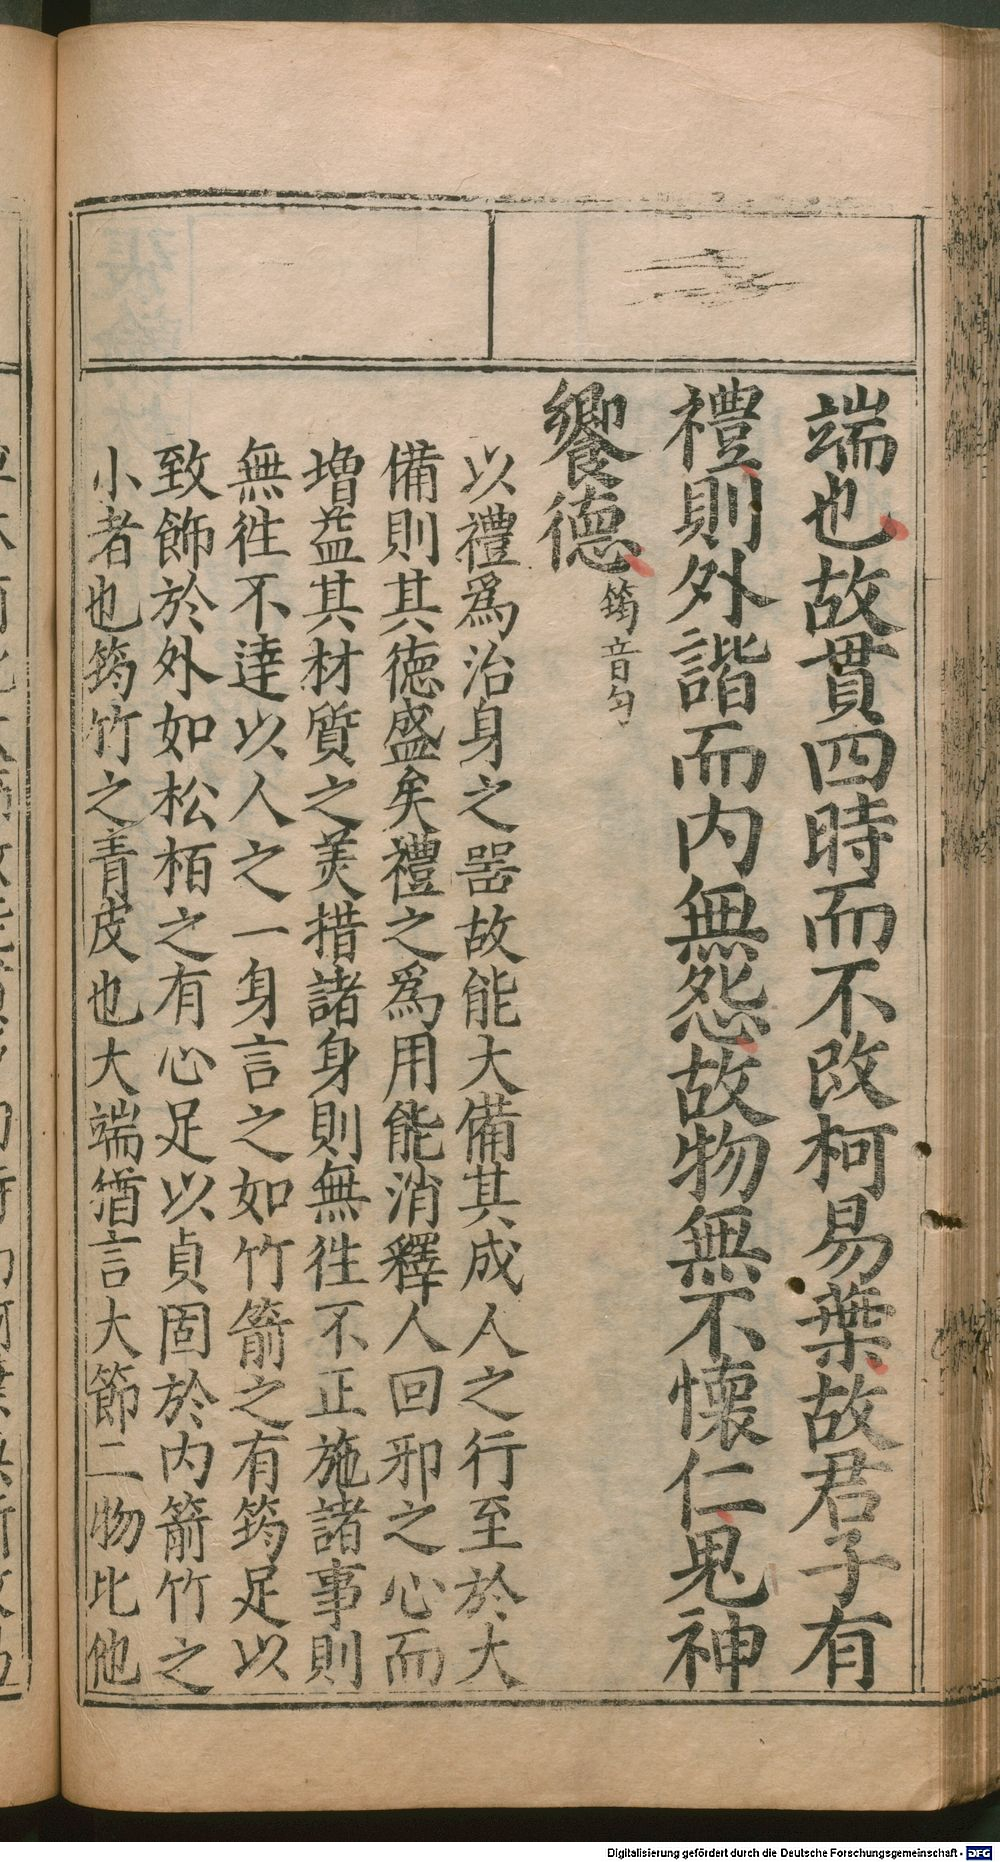 端也故貫四時而不改柯易葉故君子有
禮則外諧而内無怨故物無不懷仁鬼神
饗德筠音勻
以禮爲治身之噐故能大備其成人之行至於大
備則其德盛矣禮之爲用能消釋人回邪之心而
増益其材質之美措諸身則無徃不正施諸事則
無徃不達以人之一身言之如竹箭之有筠足以
致飾於外如松栢之有心足以貞固於内箭竹之
小者也筠竹之青皮也大端猶言大節二物比他
Digitalisierung gefördert durch die Deutsche Forschungsgemeinschaft - DFG